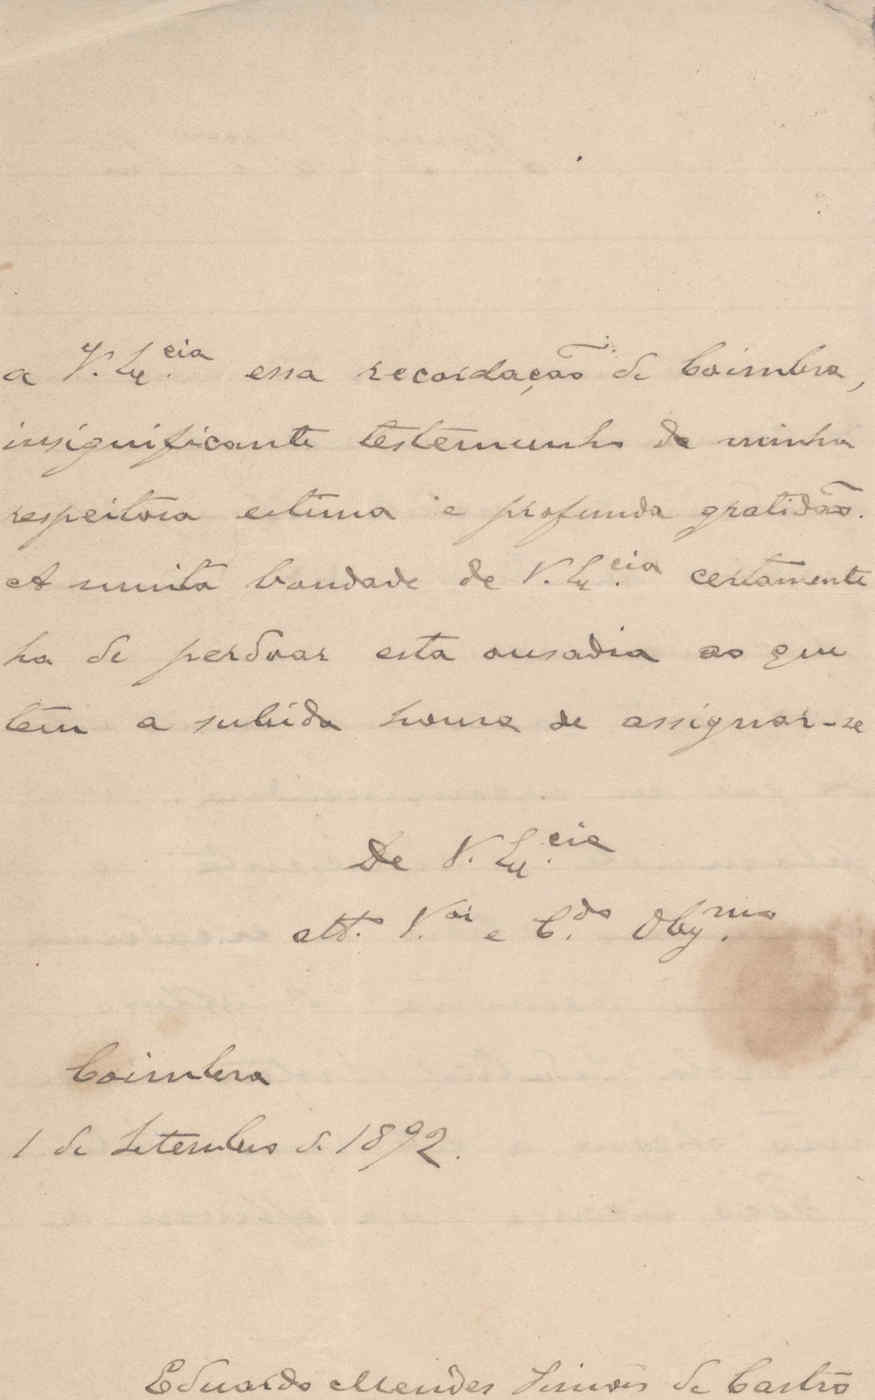 a V. Ex.cia essa recordação de Coimbra,
insignificante testemunho da minha
respeitosa estima e profunda gratidão.
A muita bondade de V. Ex.cia certamente
ha de perdoar esta ousadia ao que
tem a subida honra de assignar-se
De V. Ex.cia
att.o V.or e C.do Obg.mo
Coimbra
1 de Setembro de 1892.
Eduardo Mendes Simões de Castro